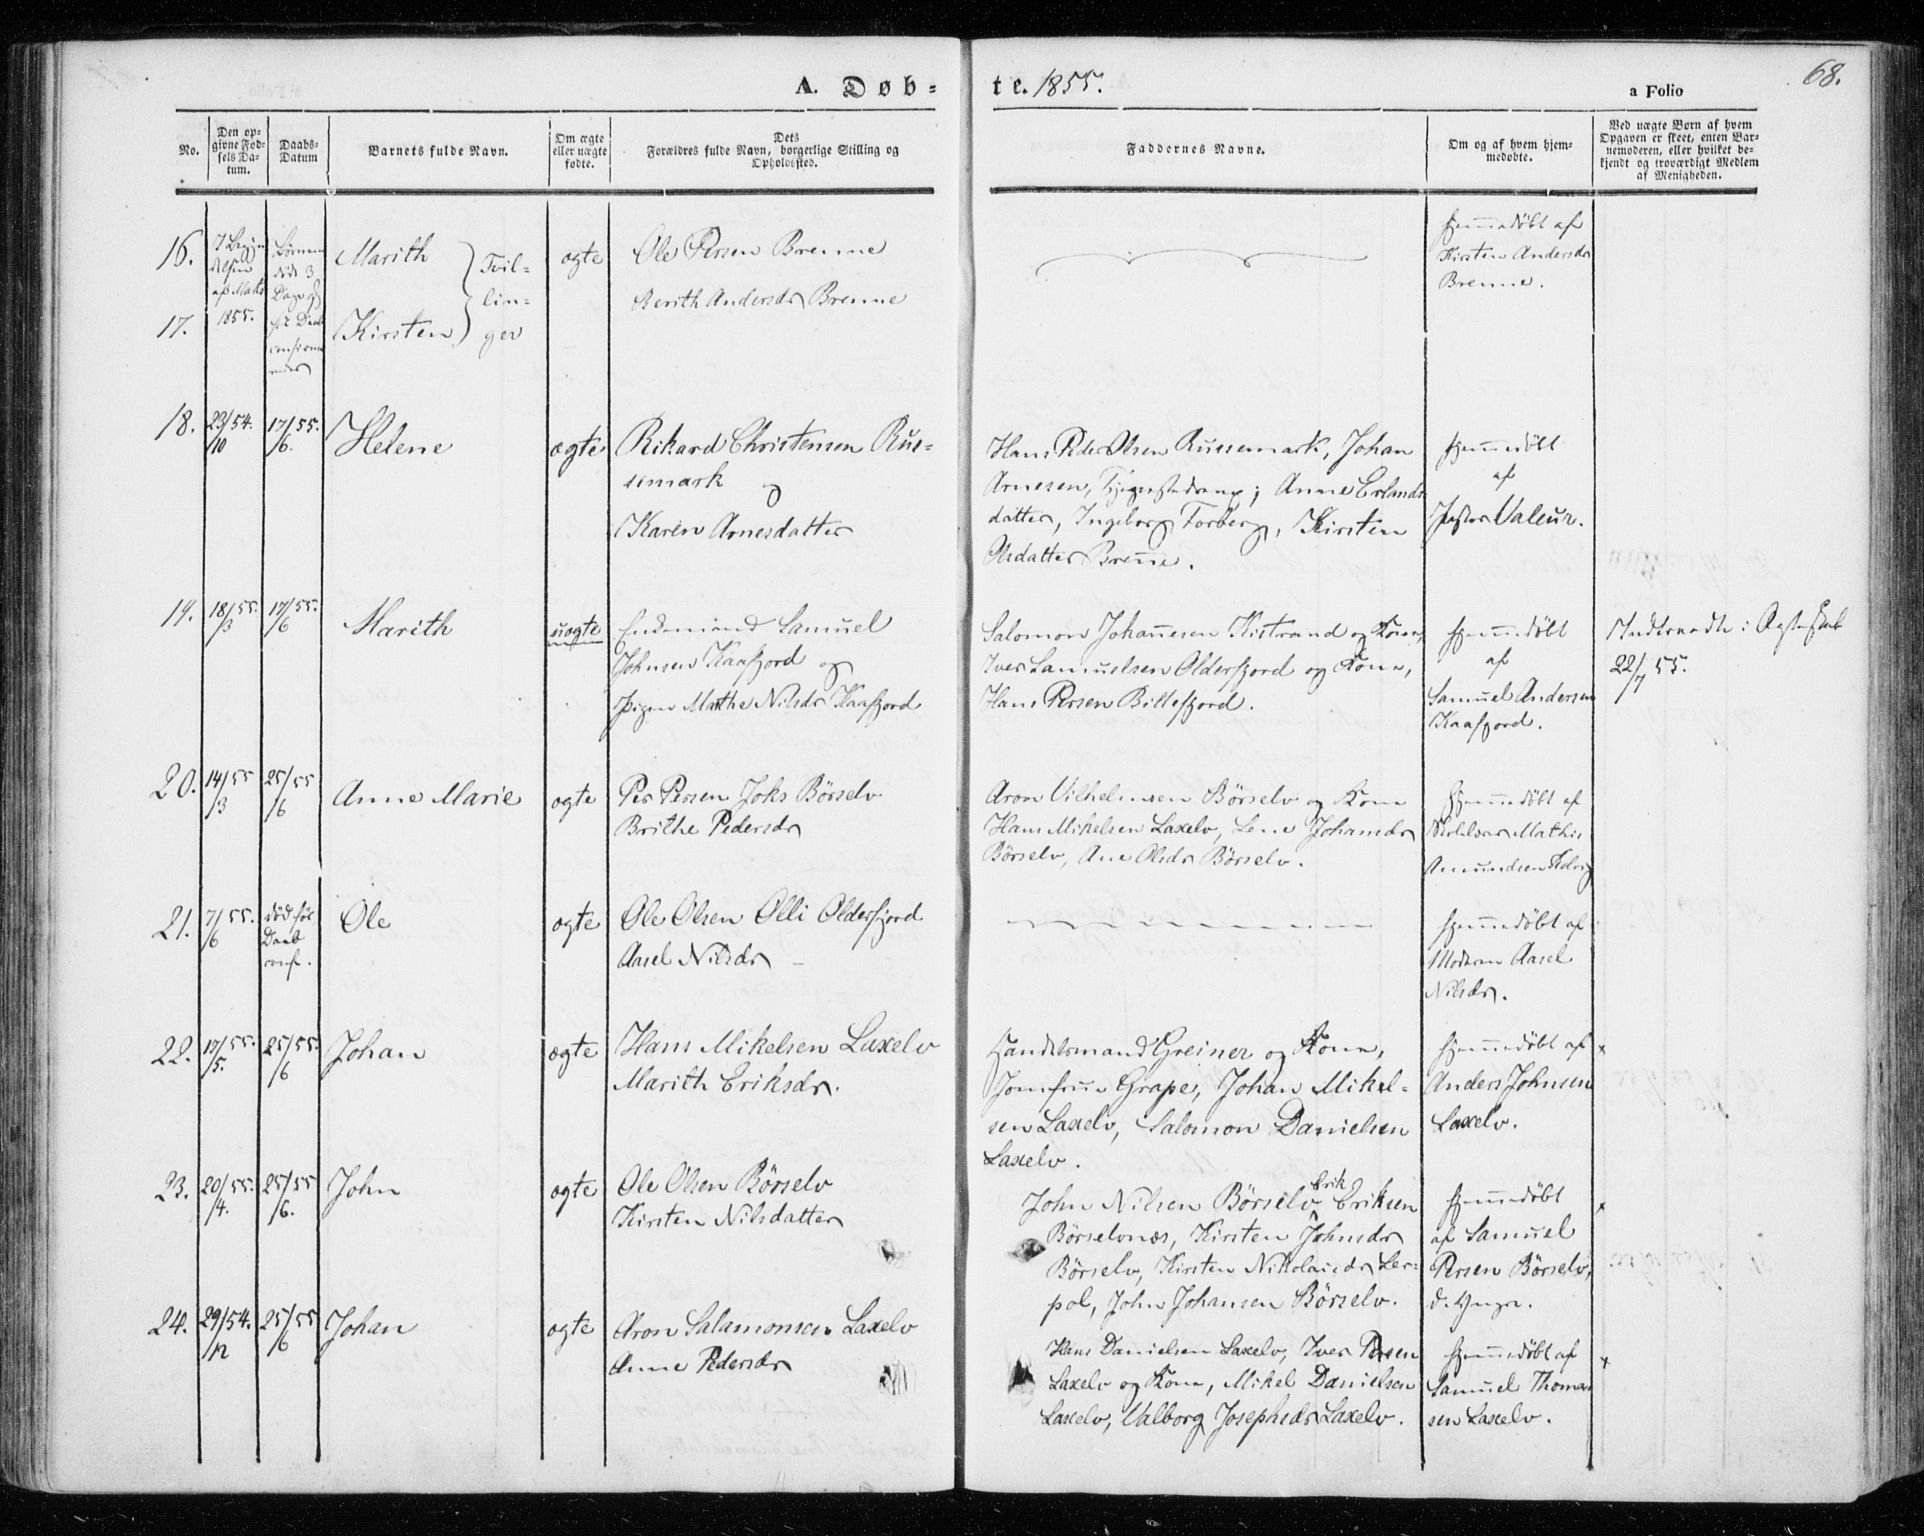 A. Døb-
te. 1855.
a Folio
68.
No.
Den op-
givne Fød-
sels Da-
tum.
Daabs-
Datum
Barnets fulde Navn.
Om ægte
eller uægte
fødte.
Dets
Forældres fulde Navn, borgerlige Stilling og
Opholdssted.
Faddernes Navne.
Om og af hvem hjem-
medøbte.
Ved uægte Børn af hvem
Opgaven er skeet, enten Bar-
nemoderen, eller hvilket be-
kjendt og troværdigt Medlem
af Menigheden.
16.
af Marts
1855.
døde 3
Dage
før Daab
Marith
Tvil-
lin-
ger
17.
Kirsten
ægte
Ole Persen Brenne
Berith Andersdr Brenne
Hjemmedøbt af
Kirsten Andersdr
Brenne.
18.
23/10 54.
17/6 55.
Helene
ægte
Rikard Christensen Rus-
semark
og
Karen Arnesdatter
Hans Peder Olsen Russemark, Johan
Arnesen, Tjenestedreng; Anne Erlands
datter, Ingeborg Forberg, Kirsten
Olsdatter Brenne.
Hjemmedøbt
af
Pastor Valeur.
19.
18/3 55.
17/6 55.
Marith
uægte
Enkemand Samuel
Johnsen Kaafjord og
Pigen Marthe Nilsdr Kaafjord
Salomon Johannesen Kistrand og Kone,
Iver Samuelsen Olderfjord og Kone,
Hans Persen Billefjord.
Hjemmedøbt
af
Samuel Andersen
Kaafjord.
Indtraadte i Ægteskab
22/7 55.
20.
14/3 55
25/6 55
Anne Marie
ægte
Per Persen Joks Børselv
Brithe Pedersdr
Aron Vilhelmsen Børselv og Kone
Hans Mikelsen Laxelv, Lene Johansdr
Børselv, Ane Olsdr Børselv.
Hjemmedøbt af
Mathis
Amundsen Kolvig
21.
7/6 55.
død før
Daab
conf.
Ole
ægte
Ole Olsen Olli Olderfjord
Aasel Nilsdr
Hjemmedøbt af
Moderen Aasel
Nilsdr.
22.
17/5 55.
25/6 55.
Johan
ægte
Hans Mikelsen Laxelv
Marith Eriksdr.
Handelsmand Greiner og Kone,
Jomfrue Grape, Johan Mikel-
sen Laxelv, Salomon Danielsen
Laxelv.
Hjemmedøbt af
Anders Johnsen
Laxelv.
x
23.
20/4 55.
25/6 55
John
ægte
Ole Olsen Børselv
Kirsten Nilsdatter
John Nilsen Børselv, Erik Eriksen
Børselvnæs, Kirsten Johnsdr
Børselv, Kirsten Nikolaisdr Ler-
pol, John Johansen Børselv.
Hjemmedøbt
af Samuel
Persen Børselv,
d. Yngre.
x
24.
29/12 54.
25/6 55
Johan
ægte
Aron Salamonsen Laxelv
Anne Pedersdr
Hans Danielsen Laxelv, Iver Persen
Laxelv og Kone, Mikel Danielsen
Laxelv, Valborg Josephsdr Laxelv.
Hjemmedøbt af
Samuel Thomas
sen Laxelv.
x